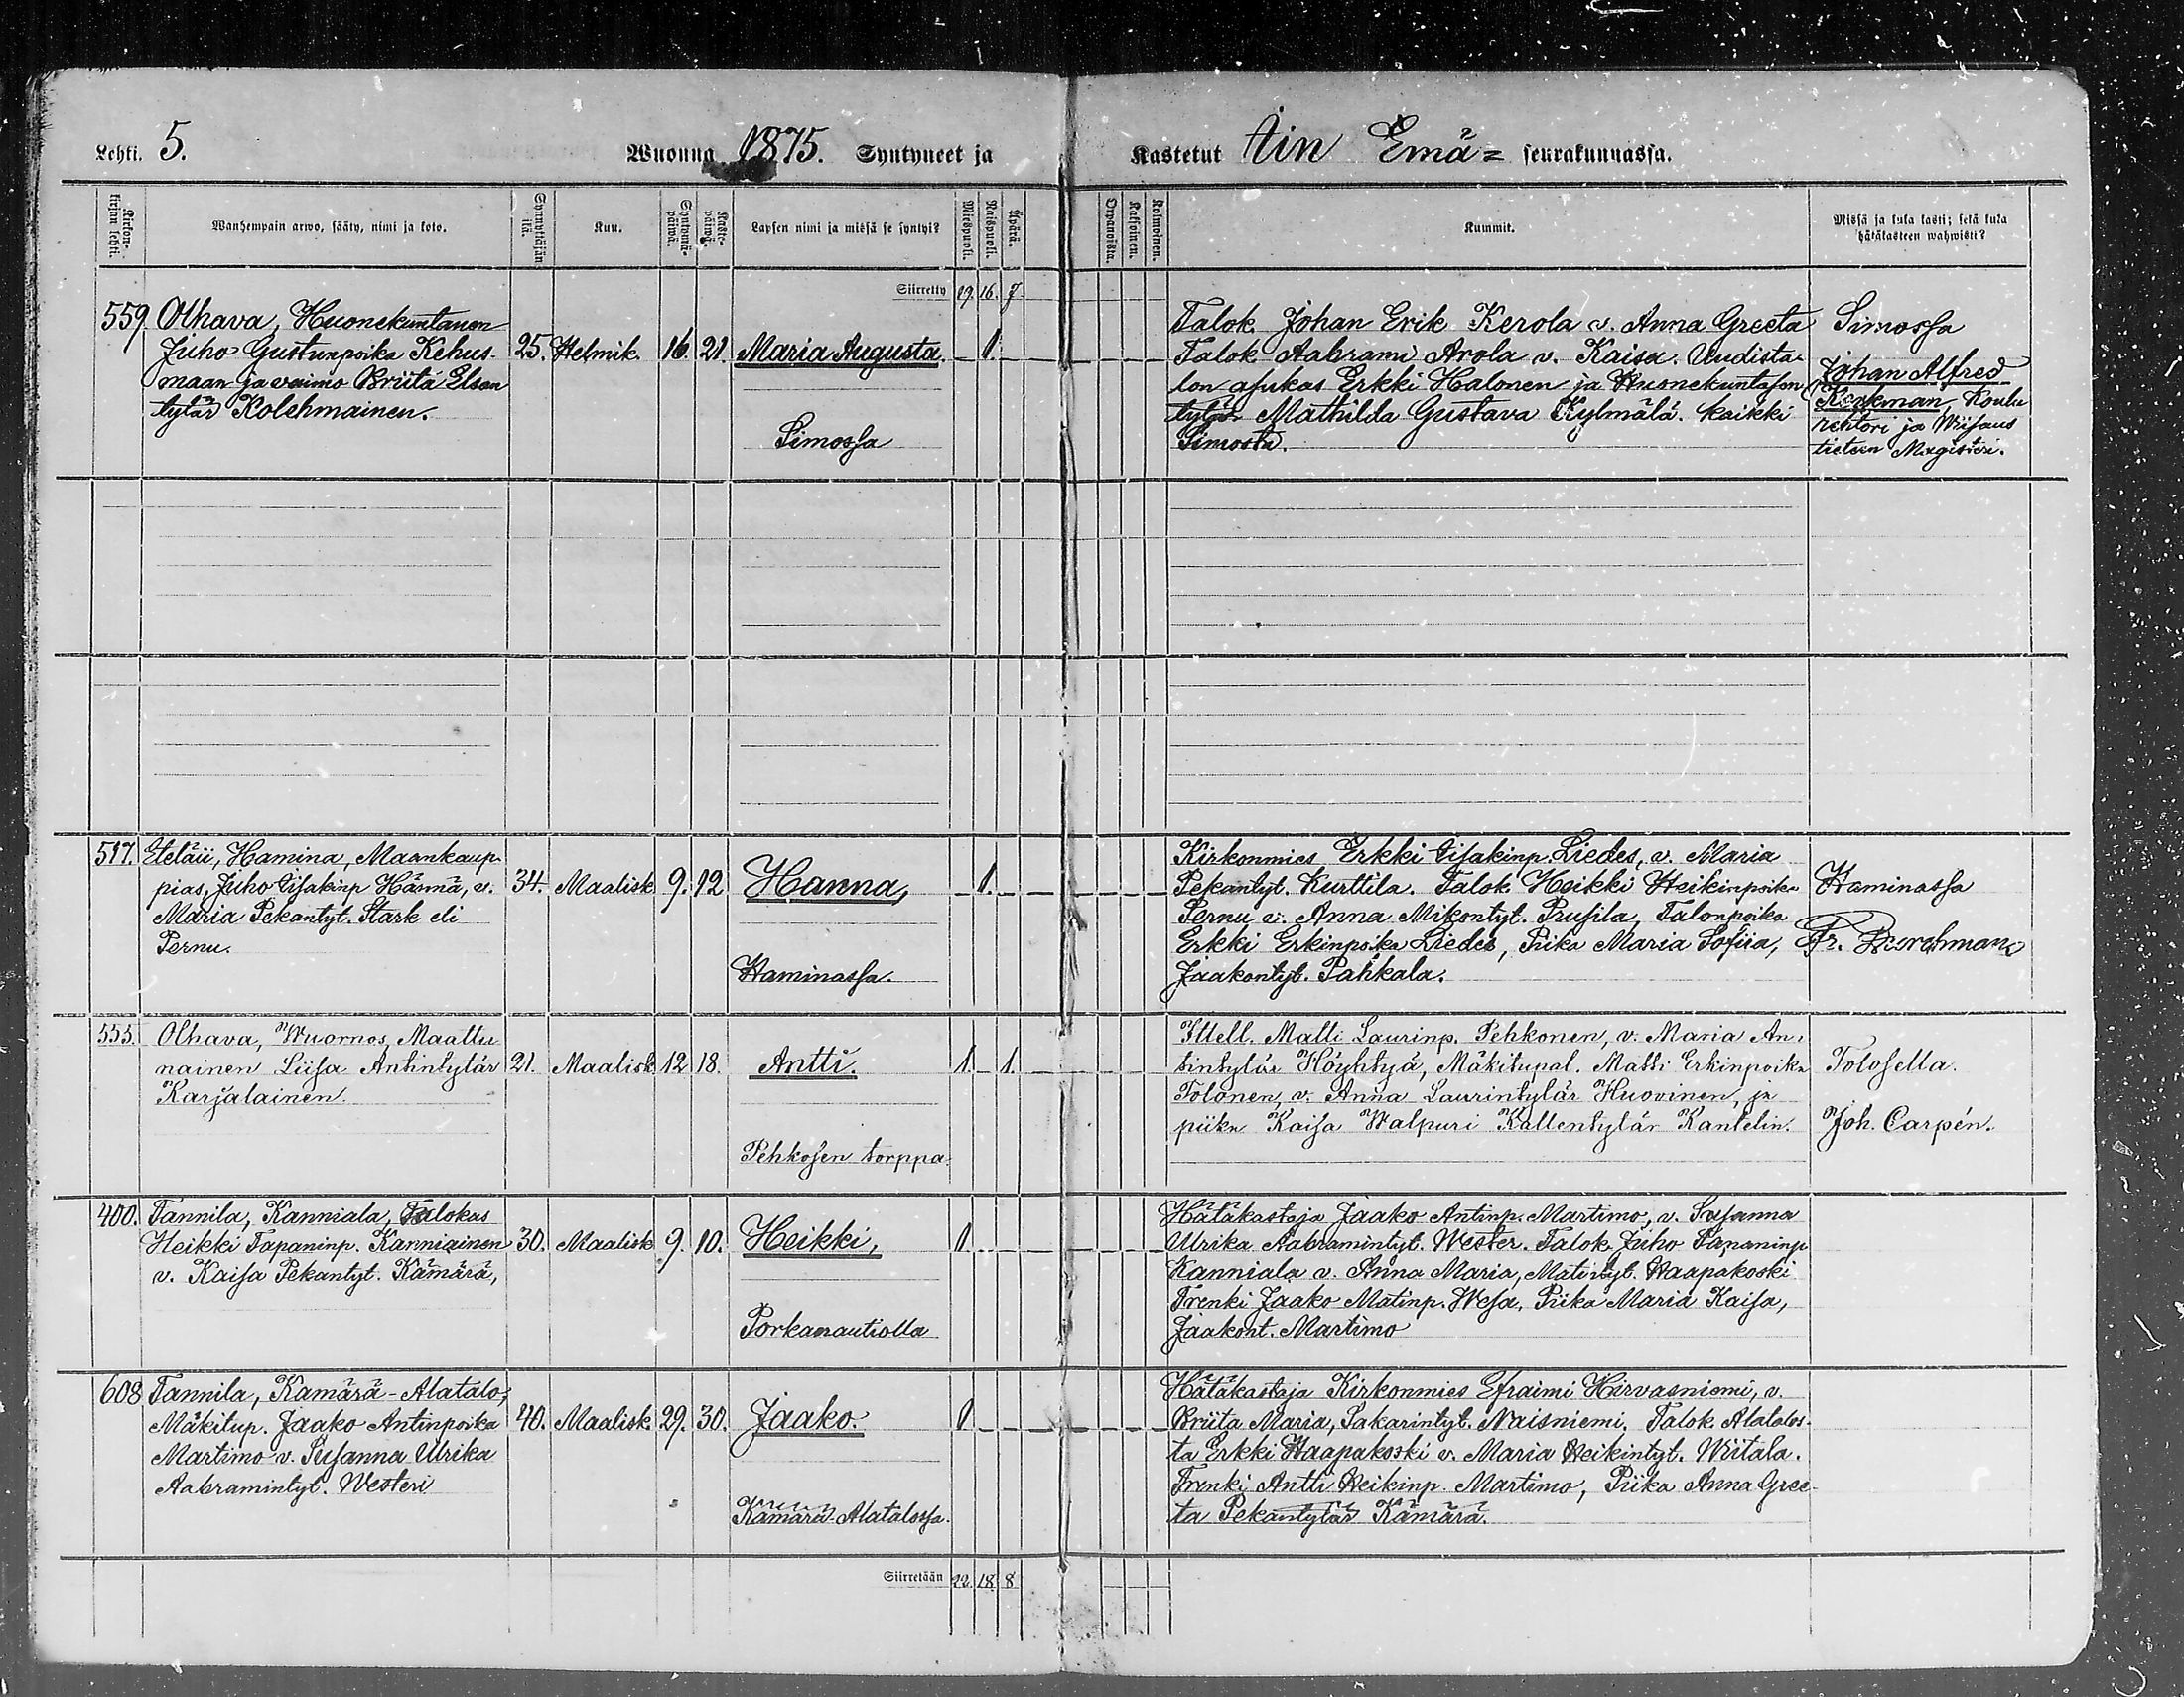 Lehti. 5.
Wuonna 1875. Syntyneet ja
Kastetut Iin Emä= seurakunnassa.
Kirkonkirjan lehti.
Wanhempain arwo, sääty, nimi ja koto.
Synnyttäjän ikä.
Kuu.
Syntymäpäiwä.
Kastepäiwä.
Lapsen nimi ja missä se syntyi?
Miehenpuoli.
Waimonpuoli.
Äpärä.
Orpanoista.
Kaksoinen.
Kolmoinen.
Kummit.
Missä ja kuka kasti; sekä kuka
hätäkasteen wahwisti?
Siirretty 19. 16. 7.
559. Olhava, Huonekuntanen
Juho Gustunpoika Kehus-
maan ja vaimo Briita Elsan
tytär Kolehmainen.
25. Helmik. 16. 21. Maria Augusta. 1.
Simossa
Talok Johan Erik Kerola v. Anna Greeta
Talok Aabrami Arola v. Kaisa. Uudista-
lon asukas Erkki Halonen ja Huonekuntasen
tytär Mathilda Gustava Kylmälä. kaikki
Simosta.
Simossa
Johan Alfred
Korkman Koulu
rehtori ja Wiisaus
tieteen Magisteri.
517. Eteläii, Hamina, Maankaup-
pias, Juho Eisakinp Härmä, v.
Maria Pekantyt. Stark eli
Pernu.
34. Maalisk. 9. 12 Hanna, 1.
Haminassa.
Kirkonmies Erkki Eisakinp. Liedes, v. Maria
Pekantyt. Kurttila. Talok Heikki Heikinpoika
Pernu v. Anna Mikontyt. Prusila, Talonpoika
Erkki Erkinpoika Liedes, Piika Maria Sofiia,
Jaakontyt. Pahkala.
Haminassa
Fr. Borchman
555. Olhava, Wuornos, Maattu
nainen Liisa Antintytär
Karjalainen.
21. Maalisk. 12 18. Antti. 1. 1.
Pehkosen torppa.
Itsell. Matti Laurinp. Pehkonen, v. Maria An-
tintytär Höyhtyä, Mäkitupal. Matti Erkinpoika
Tolonen, v. Anna Laurintytär Huovinen, ja
piika Kaisa Walpuri Kallentytär Kantelin.
Tolosella.
Joh. Carpén.
400. Tannila, Kanniala, Talokas
Heikki Tapaninp. Kanniainen
v. Kaisa Pekantyt. Kämärä,
30. Maalisk 9. 10. Heikki, 1.
Porkanautiolla
Hätäkastaja Jaako Antinp. Martimo, v. Susanna
Ulrika Aabramintyt. Wester. Talok. Juho Tapaninp
Kanniala v. Anna Maria, Matintyt. Haapakoski
Trenki Jaako Matinp. Wesa, Piika Maria Kaisa,
Jaakont. Martimo
608 Tannila, Kämärä-Alatalo,
Mäkitup. Jaako Antinpoika
Martimo v. Susanna Ulrika
Aabramintyt. Westeri
40. Maalisk. 29. 30. Jaako. 1
Kämärä-Alatalossa.
Hätäkastaja Kirkonmies Efraimi Hirvasniemi, v.
Briita Maria, Sakarintyt. Naisniemi. Talok. Alatalos-
ta Erkki Haapakoski v. Maria Heikintyt. Wiitala.
Trenki Antti Heikinp. Martimo, Piika Anna Gree-
ta Pekantytär Kämärä.
Siirretään 22. 18. 8